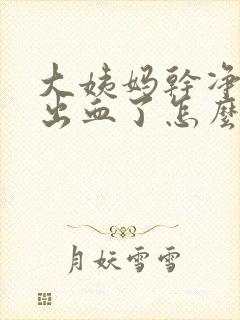 大姨妈幹净
出血了怎麽
月妖雪雪